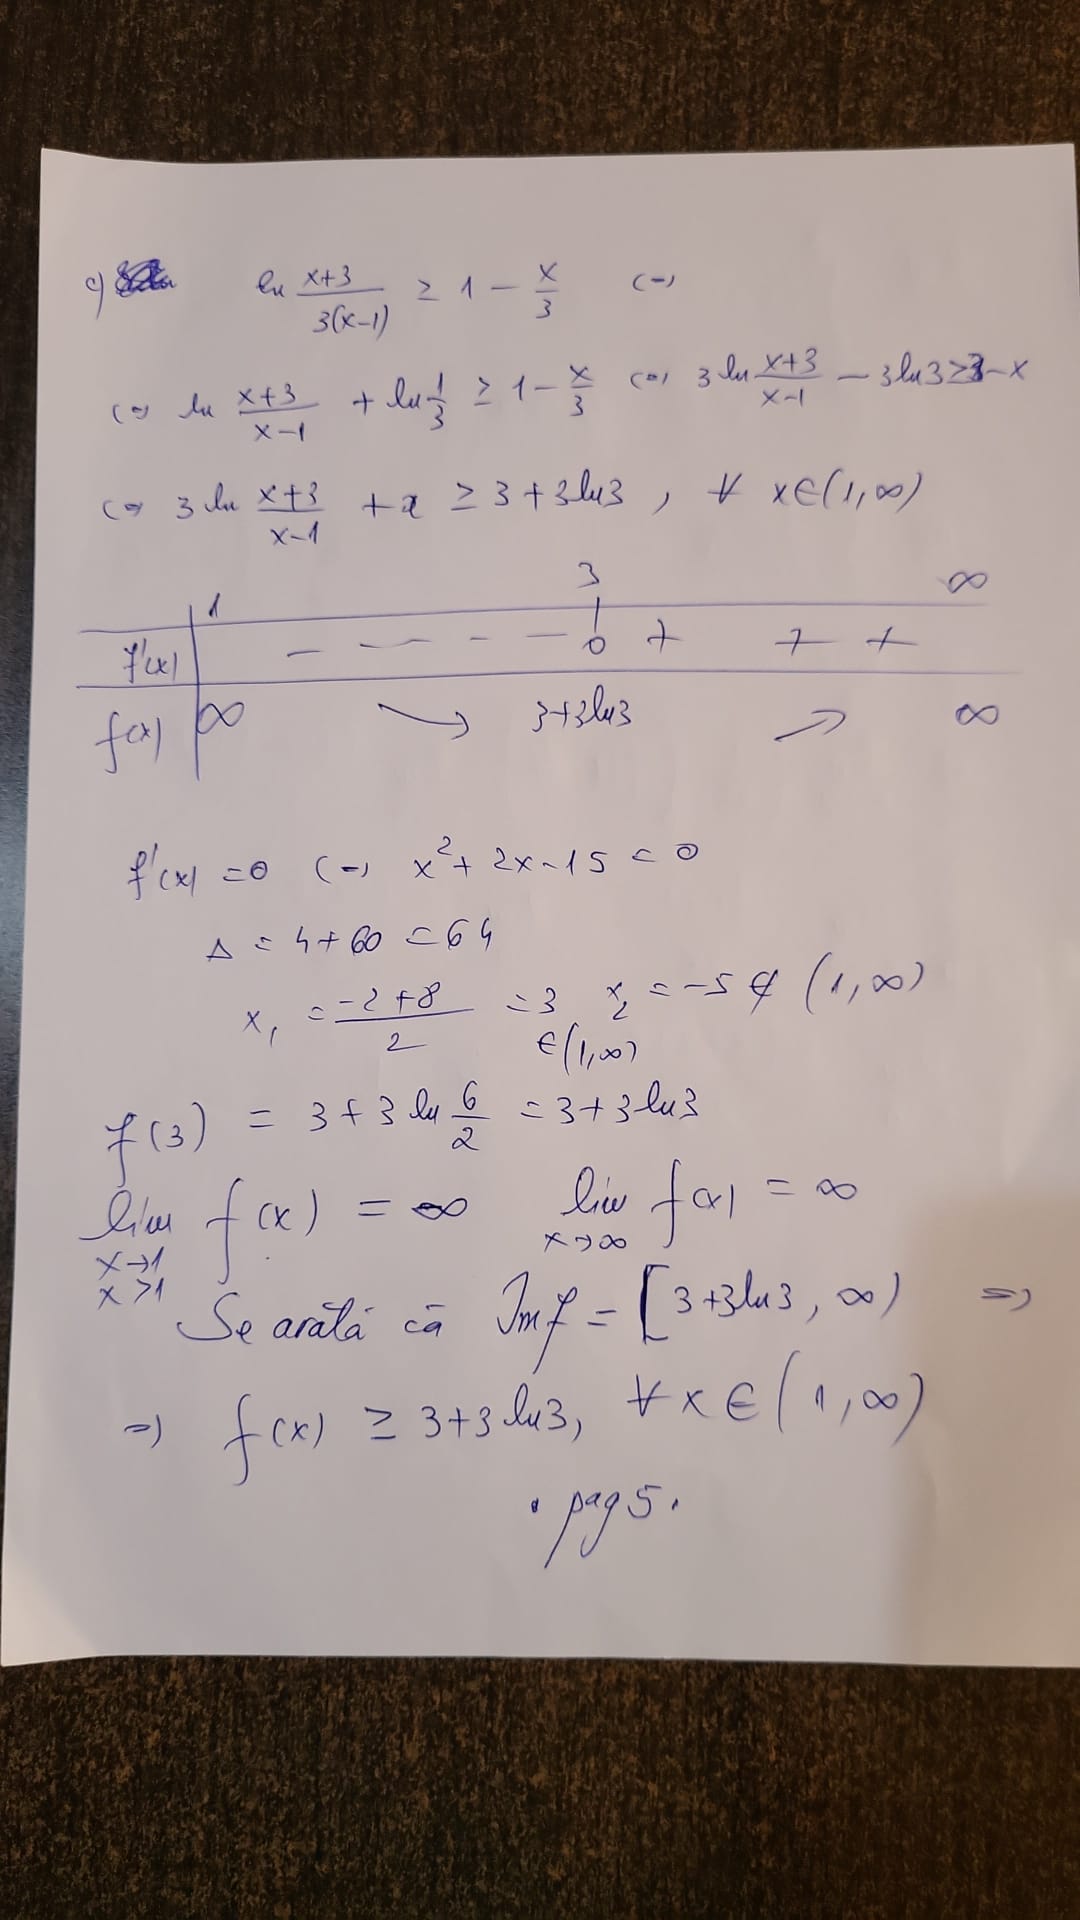 c) ln (x+3)/(3(x-1)) ≥ 1 - x/3 (=)
(=) ln (x+3)/(x-1) + ln 1/3 ≥ 1 - x/3 (=) 3 ln (x+3)/(x-1) - 3 ln 3 ≥ 3 - x
(=) 3 ln (x+3)/(x-1) + x ≥ 3 + 3 ln 3, ∀ x ∈ (1, ∞)
1 3 ∞
f'(x) - - - - - 0 + + +
f(x) ∞ ↘ 3+3ln3 ↗ ∞
f'(x) = 0 (=) x² + 2x - 15 = 0
Δ = 4 + 60 = 64
x₁ = (-2+8)/2 = 3 ∈ (1, ∞) x₂ = -5 ∉ (1, ∞)
f(3) = 3 + 3 ln 6/2 = 3 + 3 ln 3
lim f(x) = ∞ lim f(x) = ∞
x→1 x→∞
x>1
Se arată că Im f = [3+3ln3, ∞) =)
=) f(x) ≥ 3+3 ln3, ∀ x ∈ (1, ∞)
. pag 5.